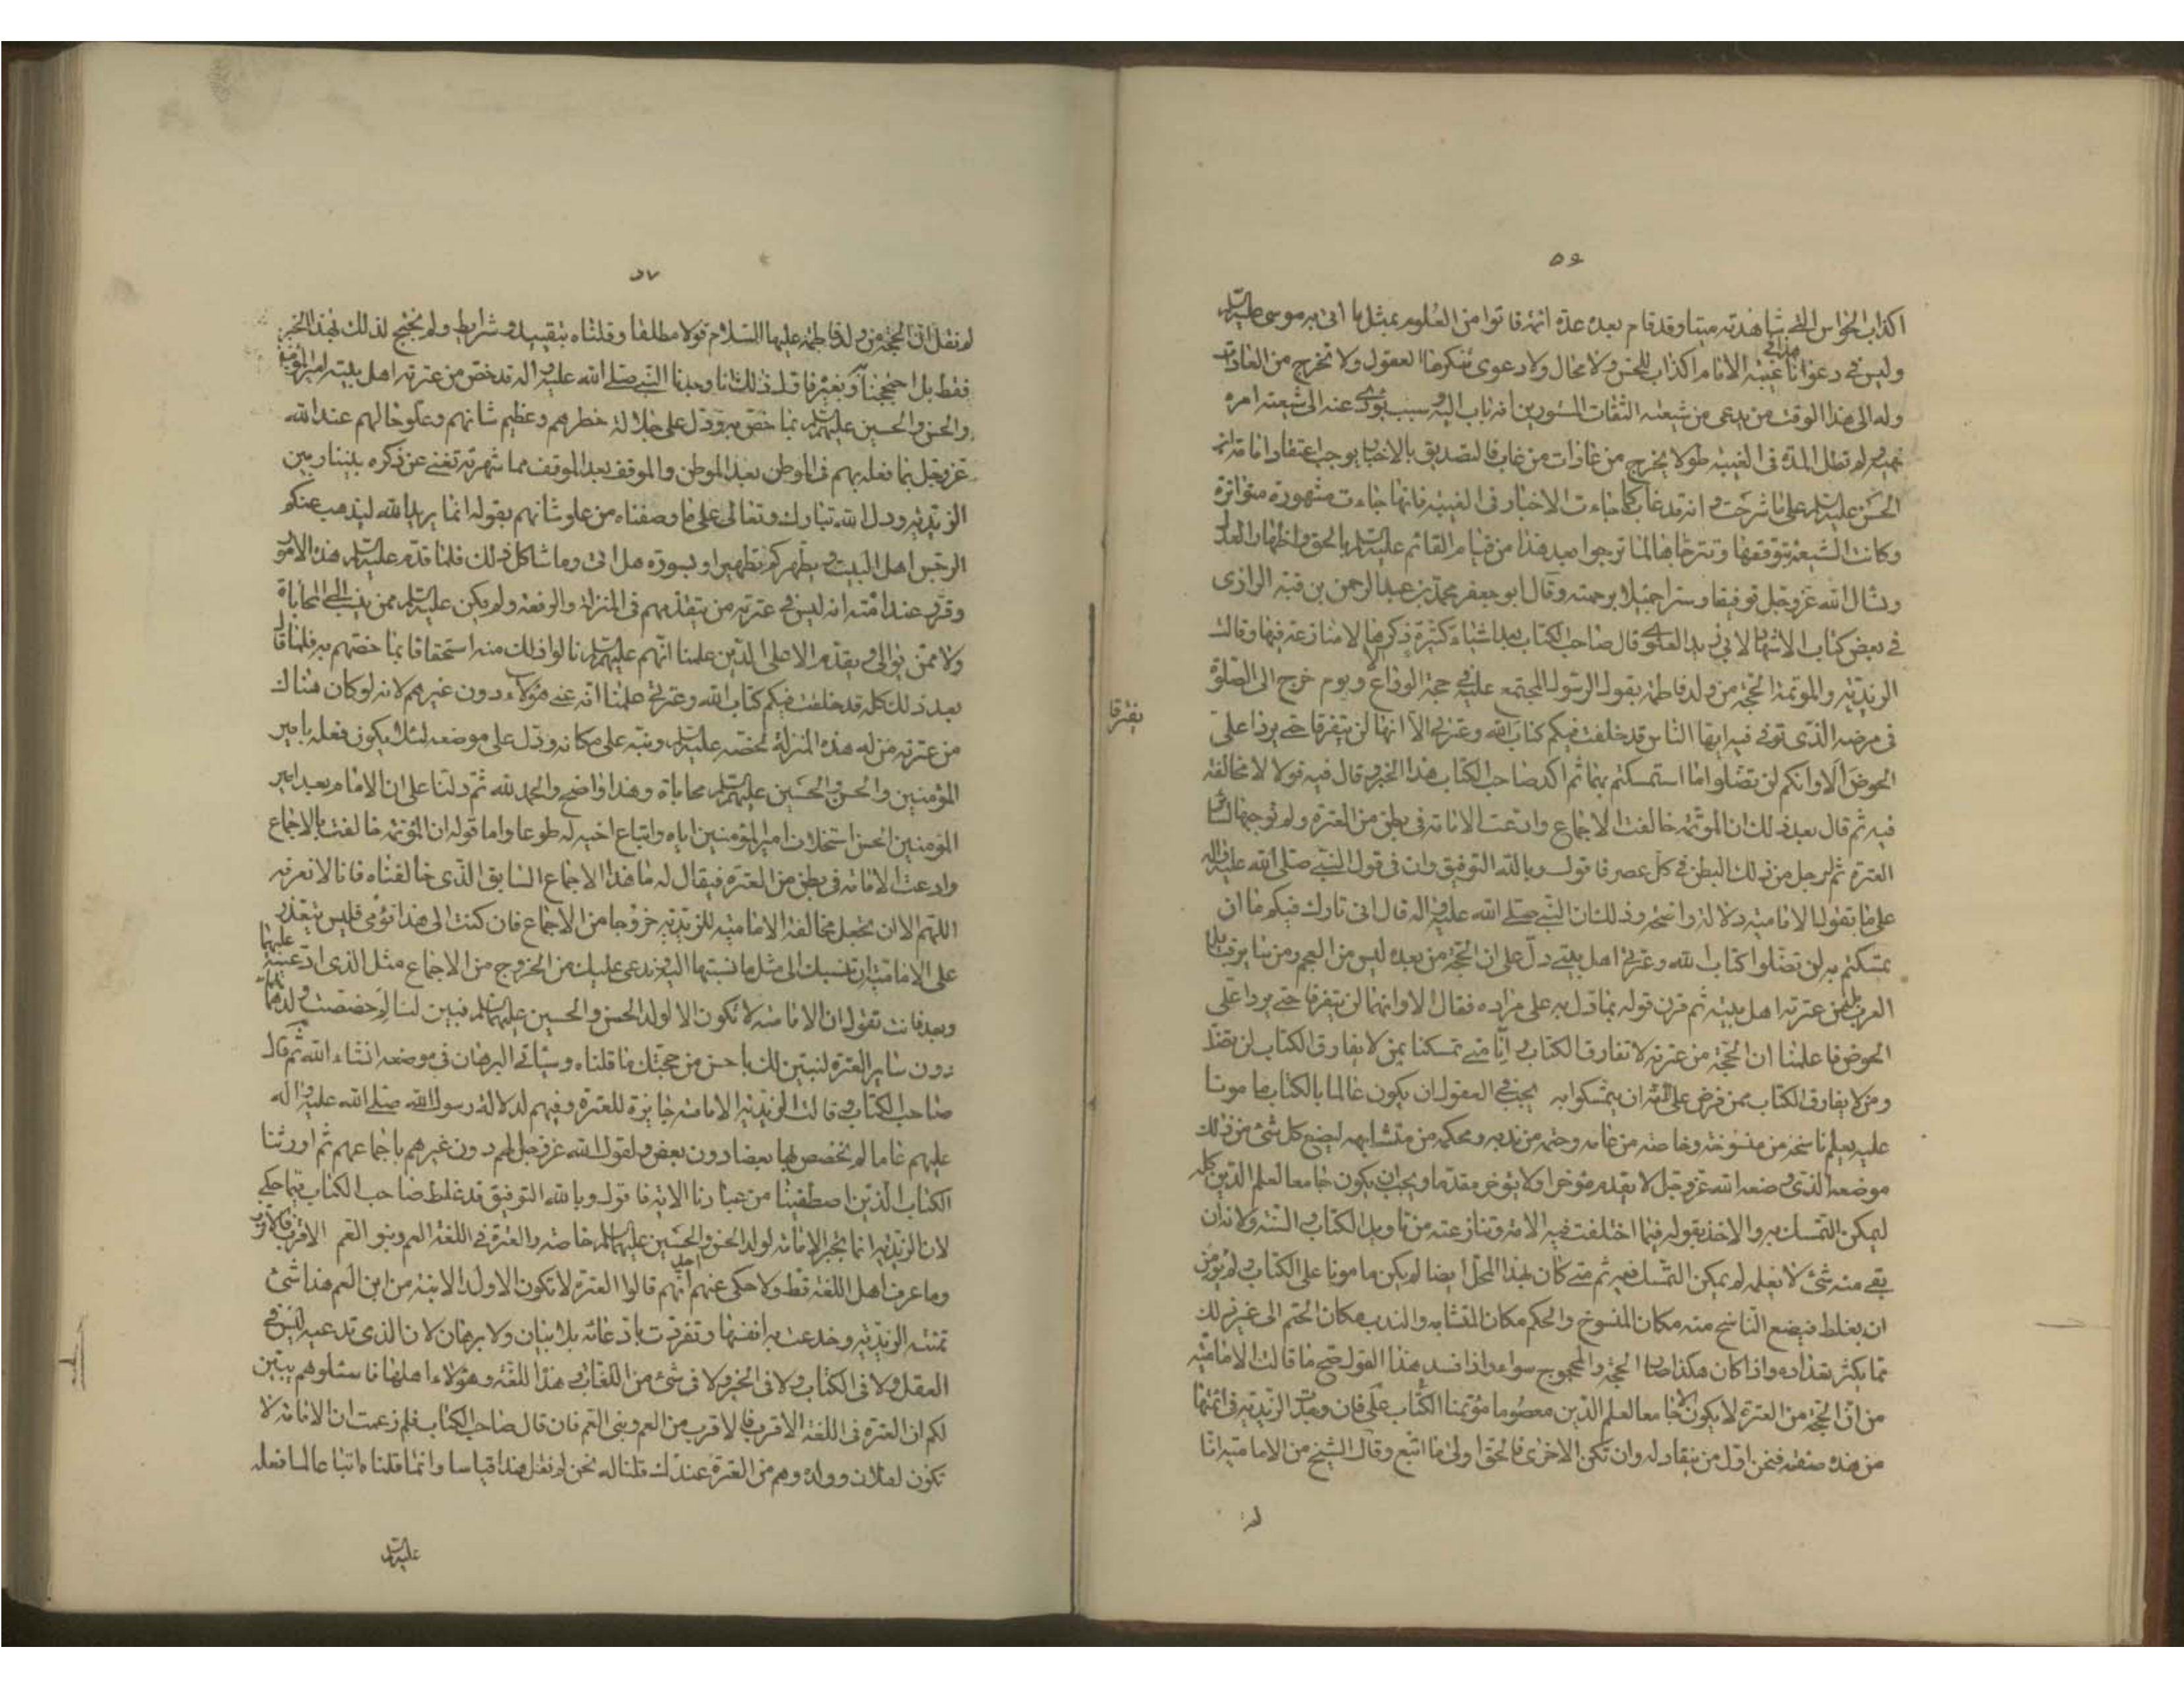 ٥٦
اكذاب الحواس التي شاهدته ميتا وقد قام بعده عدة ائمة فاتوا من العلوم بمثل ما اتى به موسى عليه السلم
وليس في دعوانا هذه في غيبة الامام اكذاب للحس ولا محال ولا دعوى تنكرها العقول ولا تخرج من العادات
وله الى هذا الوقت من يدعى من شيعته الثقات المستورين انه باب اليه وسبب يؤدى عنه الى شيعته امره
ونهيه ولم تطل المدة في الغيبة طولا يخرج من عادات من غاب فالتصديق بالاخبار يوجب اعتقاد امامة ابن
الحسن عليه السلم على ما شرحت و انه قد غاب كما جاءت الاخبار في الغيبة فانها جاءت مشهورة متواترة
وكانت الشيعة تتوقعها وتترجاها كما ترجوا بعد هذا من قيام القائم عليه السلم بالحق واظهار العدل
ونسال الله عز وجل توفيقا وستر اجميلا برحمته وقال ابو جعفر محمد بن عبد الرحمن بن قبة الرازى
في بعض كتاب الاشهاد لابى زيد العلوى قال صاحب الكتاب بعد اشياء كثيرة ذكرها لا منازعة فيها وقالت
الزيدية والمؤتمة الحجة من ولد فاطمة بقول الرسول المجتمع عليه في حجة الوداع ويوم خرج الى الصلوة
في مرضه الذى توفى فيه ايها الناس قد خلفت فيكم كتاب الله وعترتى الا انهما لن يتفرقا حتى يردا على
يفترقا
الحوض الا وانكم لن تضلوا ما استمسكتم بهما ثم اكد صاحب الكتاب هذا الخبر وقال فيه قولا لا مخالفة
فيه ثم قال بعد ذلك ان المؤتمة خالفت الاجماع وادعت الامامة في بطن من العترة ولم توجبها لسائر
العترة ثم لرجل من ذلك البطن في كل عصر فاقول وبالله التوفيق وان في قول النبى صلى الله عليه واله
على ما تقول الامامية دلالة واضحة وذلك ان النبى صلى الله عليه واله قال انى تارك فيكم ما ان
تمسكتم به لن تضلوا كتاب الله وعترتى اهل بيتى دل على ان الحجة من بعده ليس من العجم ومن سائر قبائل
العرب بل من عترته اهل بيته ثم قرن قوله بما دل به على مراده فقال الا وانهما لن يتفرقا حتى يردا على
الحوض فاعلمنا ان الحجة من عترته لا تفارق الكتاب و انا متى تمسكنا بمن لا يفارق الكتاب لن نضل
ومن لا يفارق الكتاب ممن فرض على الامة ان يتمسكوا به يجب في العقول ان يكون عالما بالكتاب مامونا
عليه يعلم ناسخه من منسوخه وخاصه من عامه وحتمه من ندبه ومحكمه من متشابهه ليضع كل شئ من ذلك
موضعه الذى وضعه الله عز وجل لا يقدم مؤخرا ولا يؤخر مقدما ويجب ان يكون جامعا لعلم الدين كله
ليمكن التمسك به والاخذ بقوله فيما اختلفت فيه الامة وتنازعته من تاويل الكتاب و السنة ولانه ان
بقى منه شئ لا يعلمه لم يمكن التمسك فيه ثم متى كان بهذا المحل ايضا لم يكن مامونا على الكتاب ولم يؤمن
ان يغلط فيضع الناسخ منه مكان المنسوخ والمحكم مكان المتشابه والندب مكان الحتم الى غير ذلك
مما يكثر تعداده واذا كان هكذا صار الحجة والمحجوج سواء واذا فسد هذا القول صح ما قالت الامامية
من ان الحجة من العترة لا يكون الا جامعا لعلم الدين معصوما مؤتمنا على الكتاب فان وجدت الزيدية في ائمتها
من هذه صفته فنحن اول من ينقاد له وان تكن الاخرى فالحق اولى ما اتبع وقال الشيخ من الامامية انا
لم
٥٧
لم نقل ان الحجة من ولد فاطمة عليها السلام قولا مطلقا وقلناه بتقييد وشرايط ولم نحتج لذلك بهذا الخبر
فقط بل احتججنا به وبغيره فاول ذلك انا وجدنا النبى صلى الله عليه واله قد خص من عترته اهل بيته امير المؤمنين
والحسن والحسين عليهم السلم بما خص به ودل على جلالة خطرهم وعظيم شانهم وعلو حالهم عند الله
عز وجل بما فعله بهم في الموطن بعد الموطن والموقف بعد الموقف مما شهرته تغنى عن ذكره بيننا وبين
الزيدية ودل الله تبارك وتعالى على ما وصفناه من علو شانهم بقوله انما يريد الله ليذهب عنكم
الرجس اهل البيت و يطهركم تطهيرا و بسورة هل اتى وما شاكل ذلك فلما قدم عليه السلم هذه الامور
وقرر عند امته انه ليس في عترته من يتقدمهم في المنزلة والرفعة ولم يكن عليه السلم ممن ينسب الى المحاباة
ولا ممن يوالى و يقدم الا على الدين علمنا انهم عليهم السلم نالوا ذلك منه استحقاقا بما خصهم به فلما قال
بعد ذلك كله قد خلفت فيكم كتاب الله وعترتى علمنا انه عنى هؤلاء دون غيرهم لانه لو كان هناك
من عترته من له هذه المنزلة لخصه عليه السلم ونبه على مكانه ودل على موضعه لئلا يكون فعله بامير
المؤمنين والحسن والحسين عليهم السلم محاباة وهذا واضح والحمد لله ثم دلنا على ان الامام بعد امير
المؤمنين الحسن استخلاف امير المؤمنين اياه واتباع اخيه له طوعا واما قوله ان المؤتمة خالفت بالاجماع
وادعت الامامة في بطن من العترة فيقال له ما هذا الاجماع السابق الذى خالفناه فانا لا نعرفه
اللهم الا ان تجعل مخالفة الامامية للزيدية خروجا من الاجماع فان كنت الى هذا تومى فليس يتعذر
على الامامية ان تنسبك الى مثل ما نسبتها اليه وتدعى عليك من الخروج من الاجماع مثل الذى ادعيته عليها
وبعد فانت تقول ان الامامة لا تكون الا لولد الحسن والحسين عليهما السلم فبين لنا لم خصصت ولدهما
دون ساير العترة لنبين لك باحسن من حجتك ما قلناه وسياتى البرهان في موضعه انشاء الله ثم قال
صاحب الكتاب و قالت الزيدية الامامة جايزة للعترة وفيهم لدلالة رسول الله صلى الله عليه واله
عليهم عاما لم يخصص بها بعضا دون بعض ولقول الله عز وجل لهم دون غيرهم باجماعهم ثم اورثنا
الكتاب الذين اصطفينا من عبادنا الاية فاقول وبالله التوفيق قد غلط صاحب الكتاب فيما حكى
لان الزيدية انما تجيز الامامة لولد الحسن والحسين عليهما السلم خاصة والعترة في اللغة العم وبنو العم الاقرب فالاقرب
وما عرف اهل اللغة قط ولا حكى عنهم احد انهم قالوا العترة لا تكون الا ولد الابنة من ابن العم هذا شئ
تمنته الزيدية وخدعت به انفسها وتفردت بادعائه بلا بيان ولا برهان لان الذى تدعيه ليس في
العقل ولا في الكتاب ولا في الخبر ولا في شئ من اللغات و هذا اللغة وهؤلاء اهلها فاسئلوهم يبين
لكم ان العترة في اللغة الاقرب فالاقرب من العم وبنى العم فان قال صاحب الكتاب فلم زعمت ان الامامة لا
تكون لفلان وولده وهم من العترة عندك قلنا له نحن لم نقل هذا قياسا وانما قلنا اتباعا لما فعله
عليه السلم